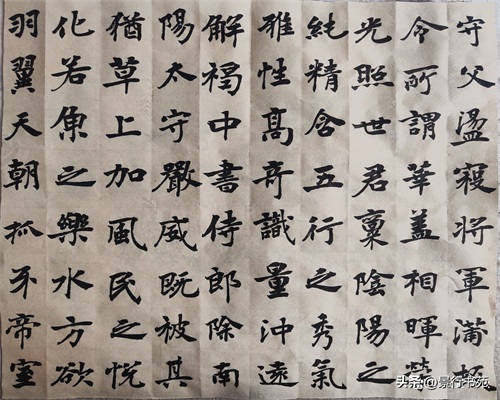 守父盪寇将軍蒲坂
令所謂華盖相暉榮
光照世君稟陰陽之
純精含五行之秀氣
雅性高奇識量沖遠
解褐中書侍郎除南
陽太守嚴威既被其
猶草上加風民之悦
化若魚之樂水方欲
羽翼天朝抓牙帝室
头条 @景行书苑